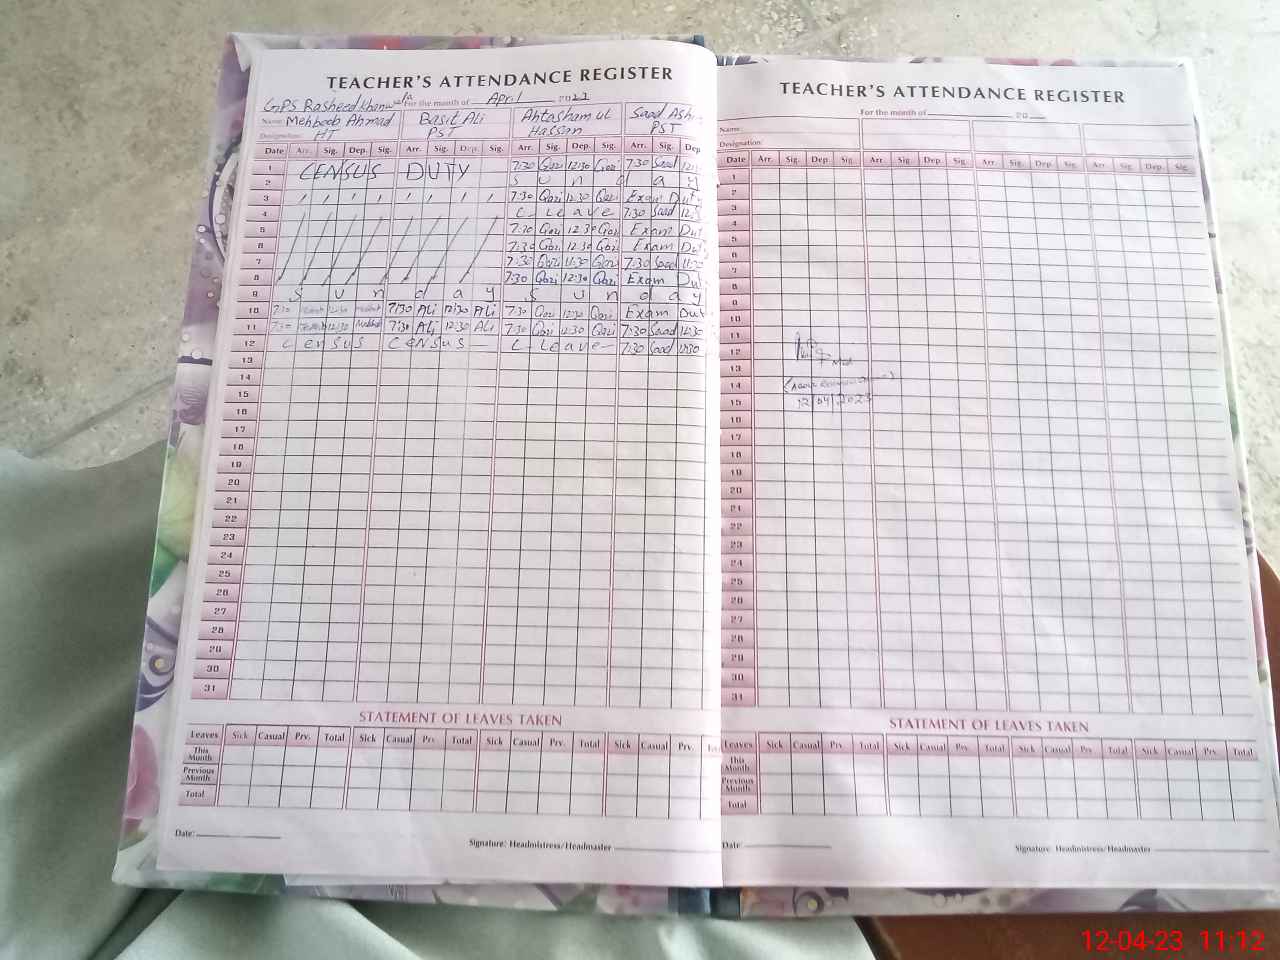 TEACHER'S ATTENDANCE REGISTER
GPS Rasheed Khanwala For the month of April 20
Name: Mehboob Ahmad Basit Ali Ahtasham ul Saad Ash
Designation: HT PST Hassan PST
Date Arr. Sig. Dep. Sig. Arr. Sig. Dep. Sig. Arr. Sig. Dep. Sig. Arr. Sig. Dep
1 CENSUS DUTY 7:30 Qazi 12:30 Qazi 7:30 Saad
2 S u n d a y
3 7:30 Qazi 12:30 Qazi Exam Duty
4 C Leave 7:30 Saad 12:3
5 7:30 Qazi 12:30 Qazi Exam Dut
6 7:30 Qazi 12:30 Qazi Exam Dut
7 7:30 Qazi 11:30 Qazi 7:30 Saad 11:30
8 7:30 Qazi 12:30 Qazi Exam Dut
9 S u n d a y S u n d a y
10 7:30 12:30 7:30 Ali 12:30 Ali 7:30 Qazi 12:30 Qazi Exam Dut
11 7:30 12:30 7:30 Ali 12:30 Ali 7:30 Qazi 12:30 Qazi 7:30 Saad 12:30
12 Census Census C Leave 7:30 Saad 12:30
13
14
15
16
17
18
19
20
21
22
23
24
25
26
27
28
29
30
31
STATEMENT OF LEAVES TAKEN
Leaves Sick Casual Prv. Total Sick Casual Prv. Total Sick Casual Prv. Total Sick Casual Prv.
This Month
Previous Month
Total
Date:
Signature: Headmistress/Headmaster
TEACHER'S ATTENDANCE REGISTER
For the month of 20
Name:
Designation:
Date Arr. Sig. Dep. Sig. Arr. Sig. Dep. Sig. Arr. Sig. Dep. Sig. Arr. Sig. Dep. Sig.
1
2
3
4
5
6
7
8
9
10
11
12
13
14
15 12/04/2023
16
17
18
19
20
21
22
23
24
25
26
27
28
29
30
31
STATEMENT OF LEAVES TAKEN
Leaves Sick Casual Prv. Total Sick Casual Prv. Total Sick Casual Prv. Total Sick Casual Prv. Total
This Month
Previous Month
Total
Date:
Signature: Headmistress/Headmaster
12-04-23 11:12